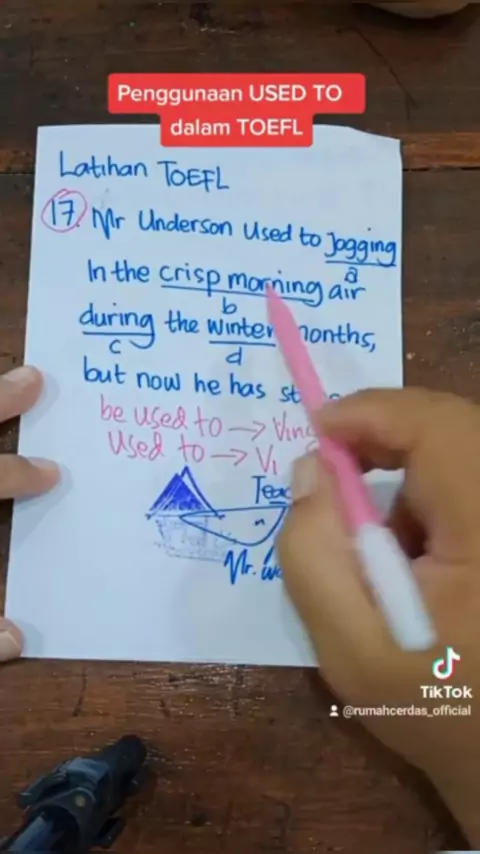 Penggunaan USED TO
dalam TOEFL
Latihan TOEFL
17. Mr Underson used to jogging
a
In the crisp morning air
b
during the winter months,
c d
but now he has
be used to → Ving
Used to → V1
Mr.
TikTok
@rumahcerdas_official